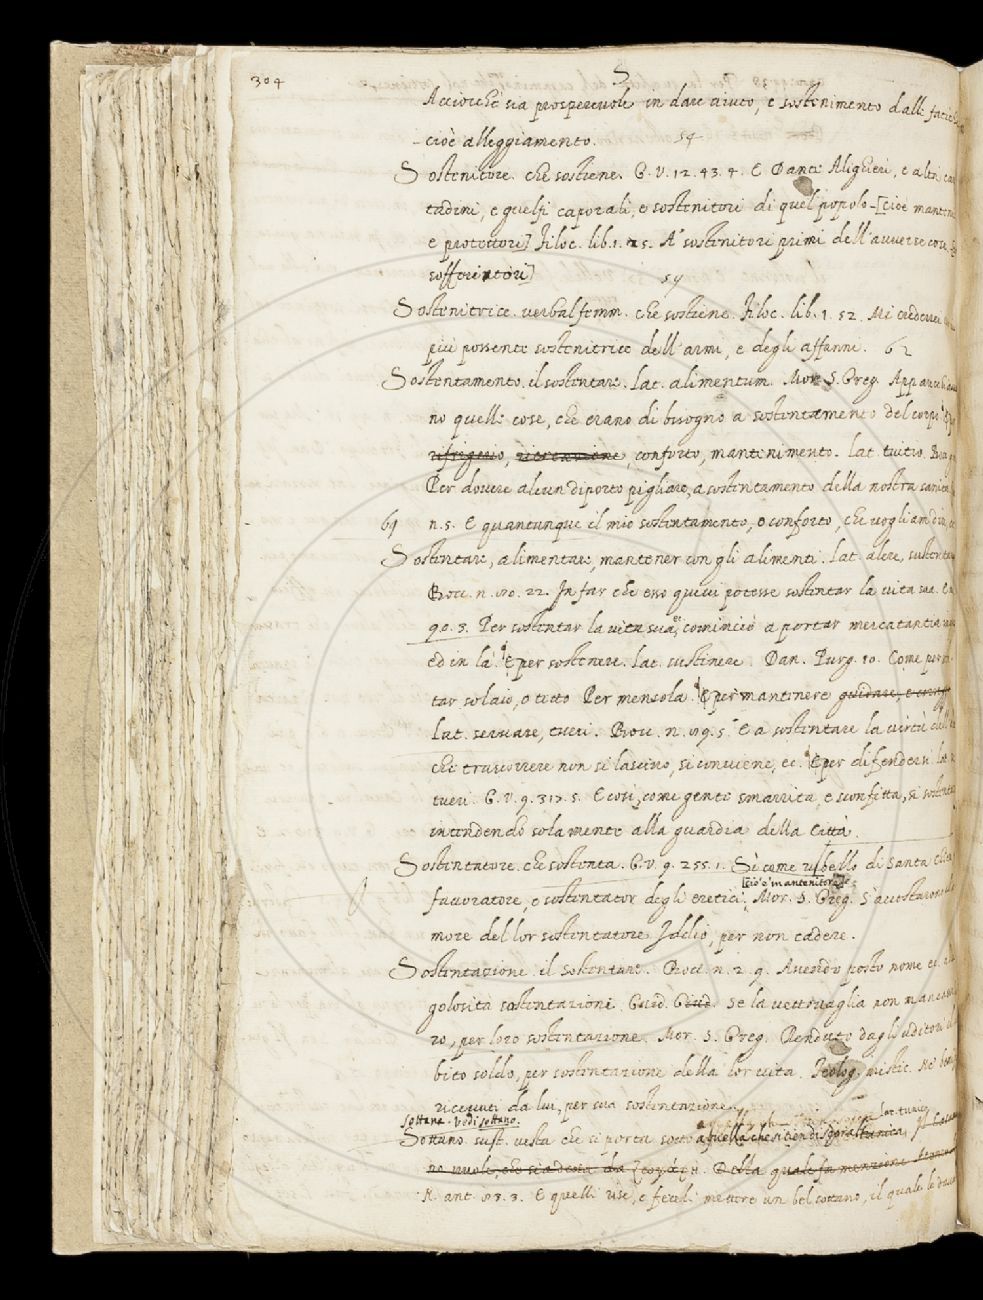 304
S
Acciocchè sia prosperevole in dare aiuto, e sostenimento dalle
cioè alleggiamento. 54
Sostenitore. che sostiene. G. V. 12. 43. 4. E Dante Alighieri, e altri
tadini, e guelfi caporali, e sostenitori di quel popolo [cioè
e protettori] Filoc. lib. 1. 25. A' sostenitori primi dell'avverse cose
sofferitori] 59
Sostenitrice. verbal femm. che sostiene. Filoc. lib. 1. 52. Mi
più possente sostenitrice dell'armi, e degli affanni. 62
Sostentamento. il sostentare. Lat. alimentum. Mor. S. Greg.
no quelle cose, che erano di bisogno a sostentamento del corpo.
rifrigerio, ricreazione, conforto, mantenimento. Lat. tuitio.
Per dovere alcun diporto pigliare, a sostentamento della nostra
61 n. 5. E quantunque il mio sostentamento, o conforto, che vogliam
Sostentare, alimentare, mantener con gli alimenti. Lat. alere,
Bocc. n. 22. In far che esso quivi potesse sostentar la vita sua.
90. 3. Per sostentar la vita sua, cominciò a portar mercatantia
ed in là. E per sostenere. Lat. sustinere. Dan. Purg. 10. Come per
tar solaio, o tetto Per mensola. E per mantenere guidare, e
Lat. servare, tueri. Bocc. n. 5. E a sostentare la virtù
che trascorrere non si lascino, si conviene, ec. E per difendersi.
tueri. G. V. 9. 317. 5. E così, come gente smarrita, e sconfitta, si
intendendo solamente alla guardia della Città.
Sostentatore. che sostenta. G. V. 9. 255. 1. Sì come ribello di Santa
[cioè mantenitore]
favoratore, e sostentator degli eretici. Mor. S. Greg. S'accostarono
more del lor sostentatore Iddio, per non cadere.
Sostentazione. il sostentare. Bocc. n. 2. 9. Avendo posto nome
golosità sostentazioni. Guid. Giud. Se la vettovaglia non
ro, per loro sostentazione. Mor. S. Greg. Renduto dagli uditori il
bito soldo, per sostentazione della lor vita. Teolog. mistic. Ne'
ricevuti da lui, per sua sostentazione.
Sottana. vedi sottano. Lat. tunica
Sottano. sust. vesta che si porta sotto a quella che si tien di sopra
no vuole, che sia detta da Della quale fa menzione
N. ant. 3. E quelli use, e feceli mettere un bel sottano, il quale le